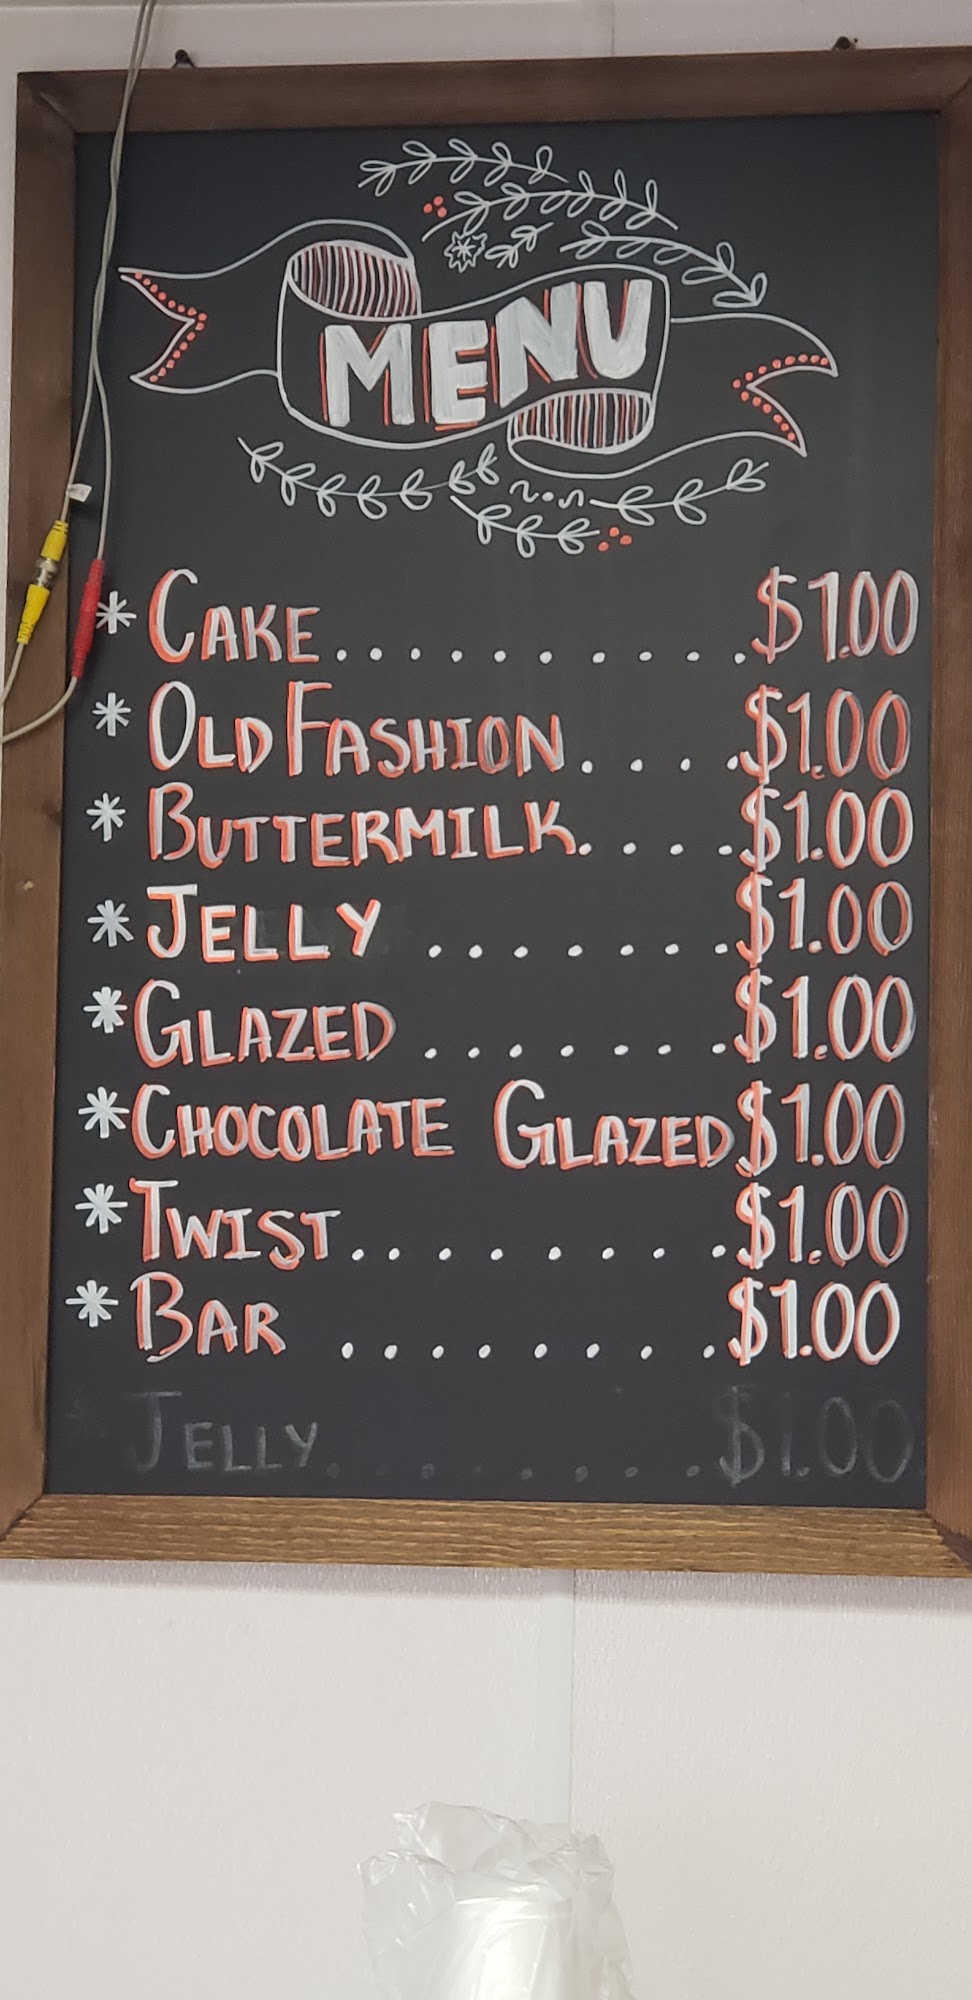 MENU
* CAKE..........$1.00
* OLD FASHION....$1.00
* BUTTERMILK....$1.00
* JELLY.......$1.00
* GLAZED.......$1.00
* CHOCOLATE GLAZED $1.00
* TWIST........$1.00
* BAR ........$1.00
* JELLY........$1.00